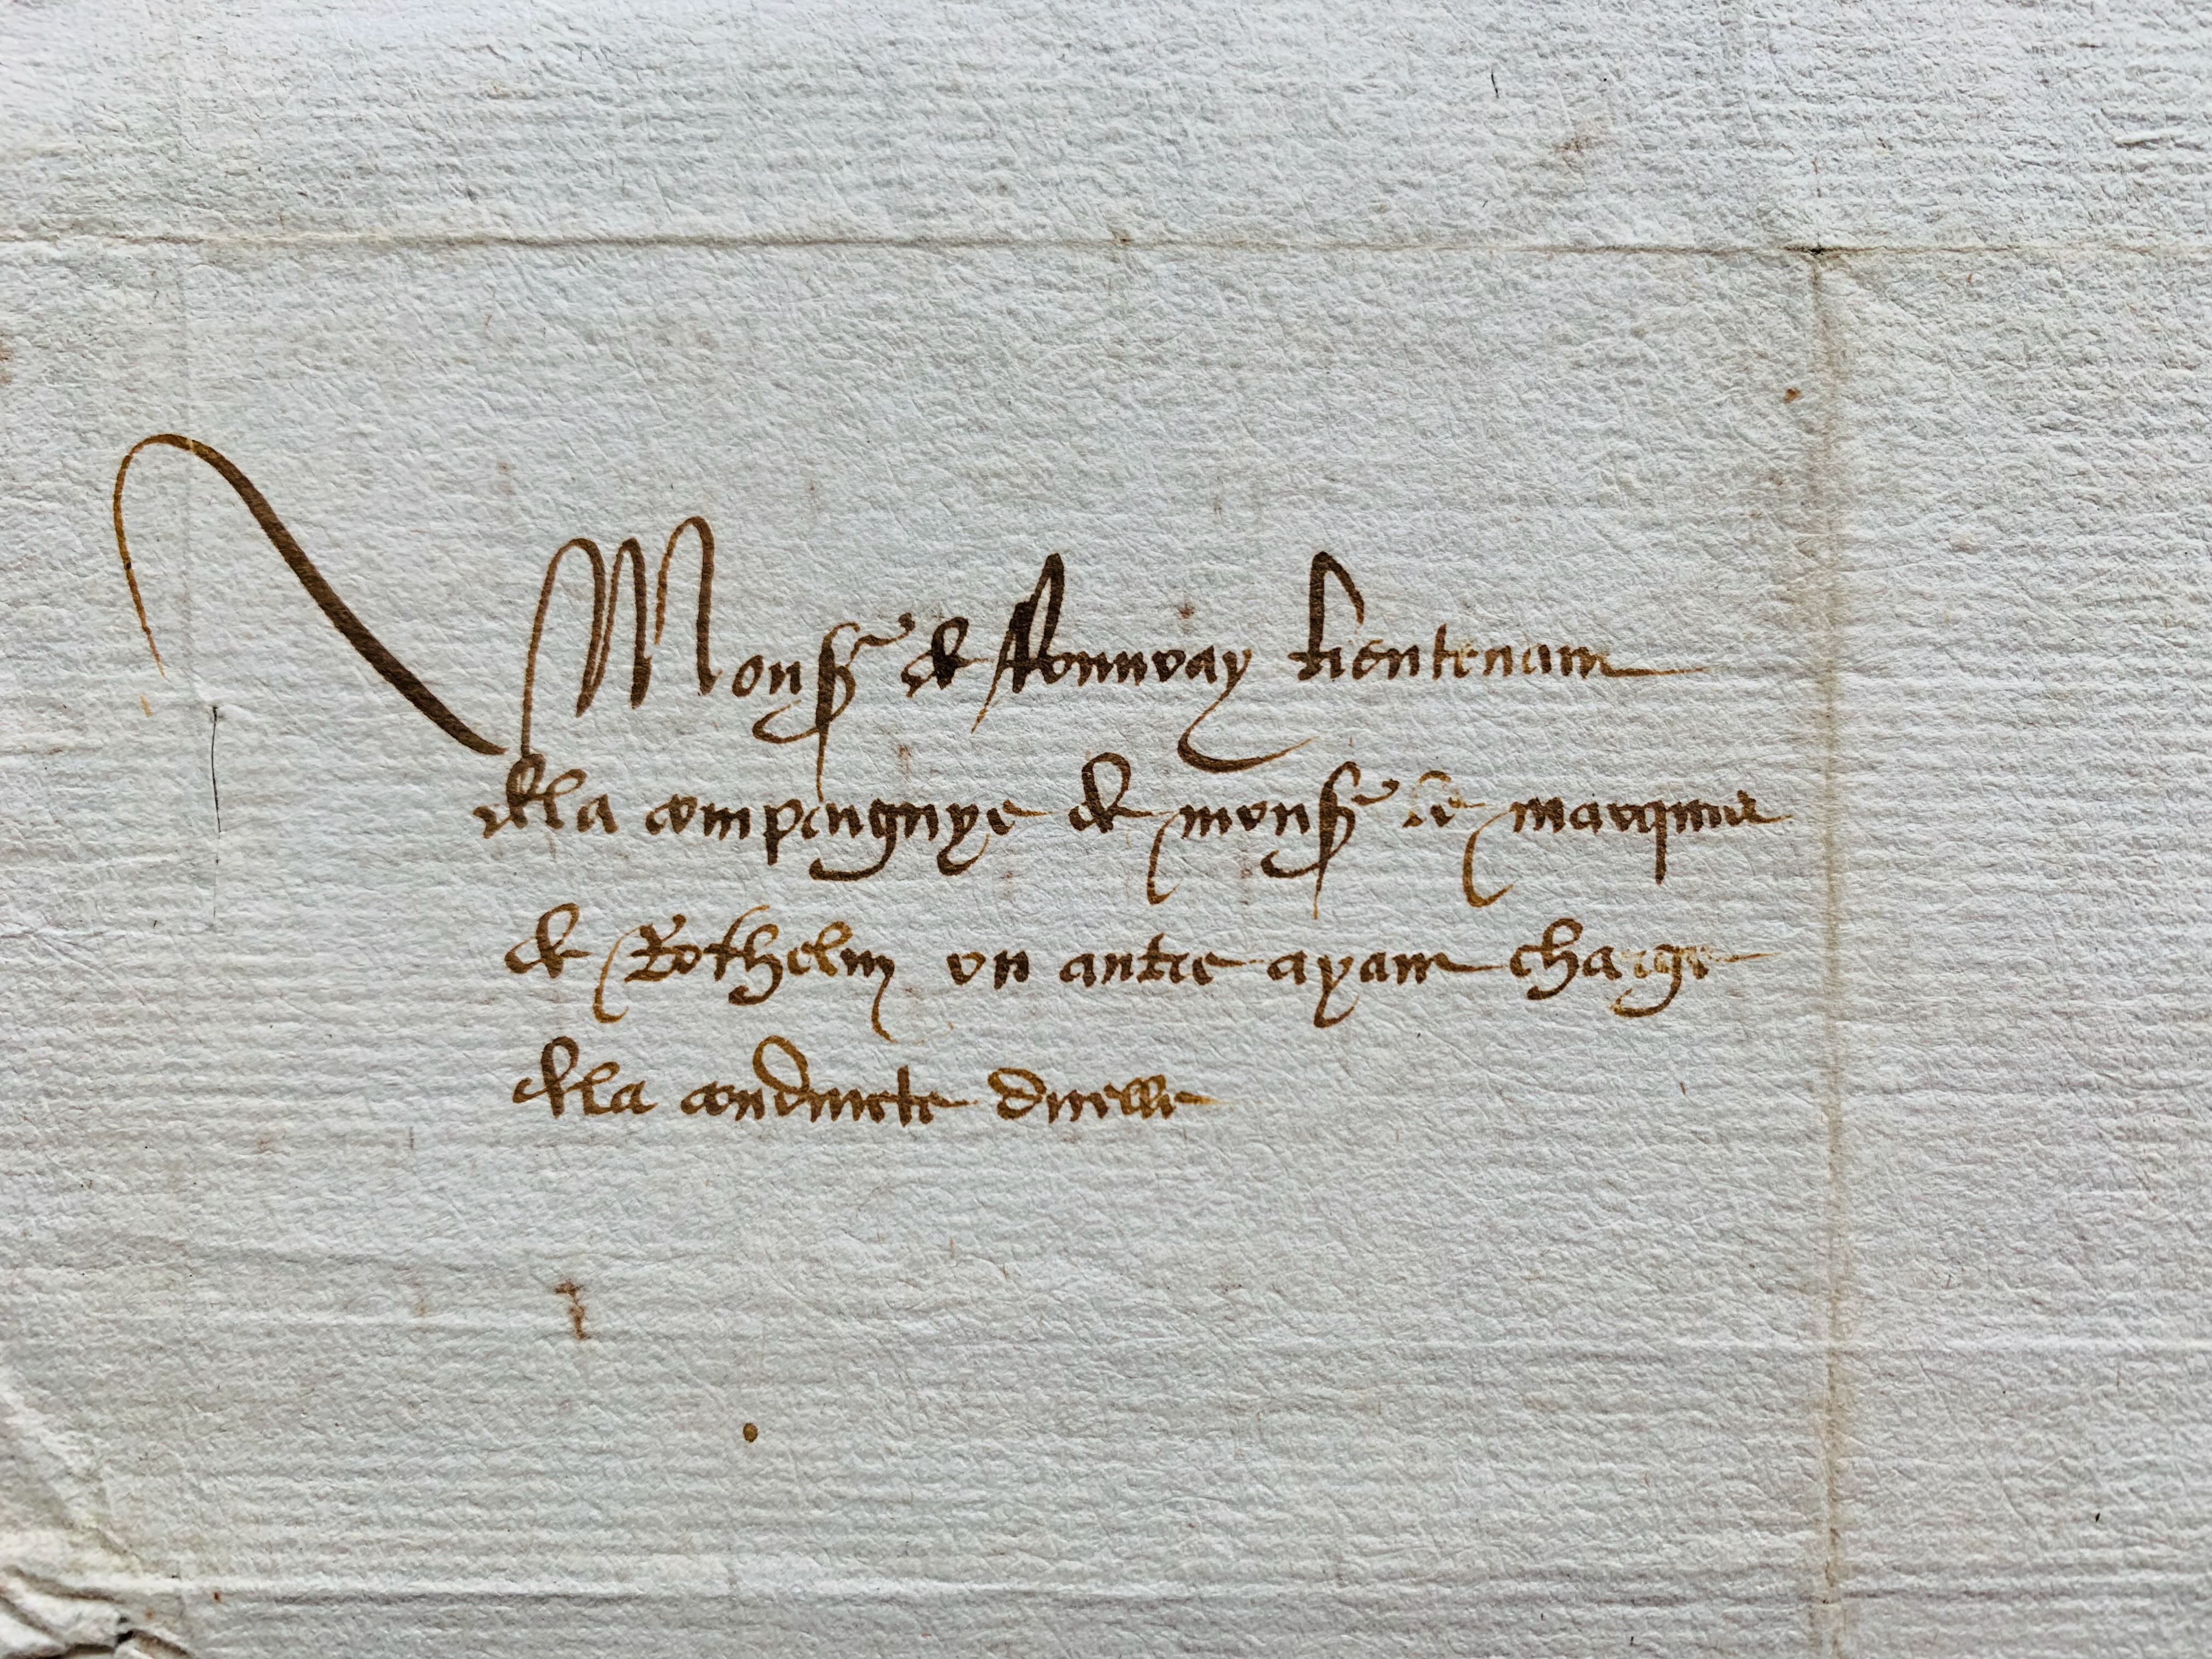 Monsr de lieutenant
de la compaignye de monsr le marquis
de Rothelin vn autre ayant charge
de la conduicte dicelle